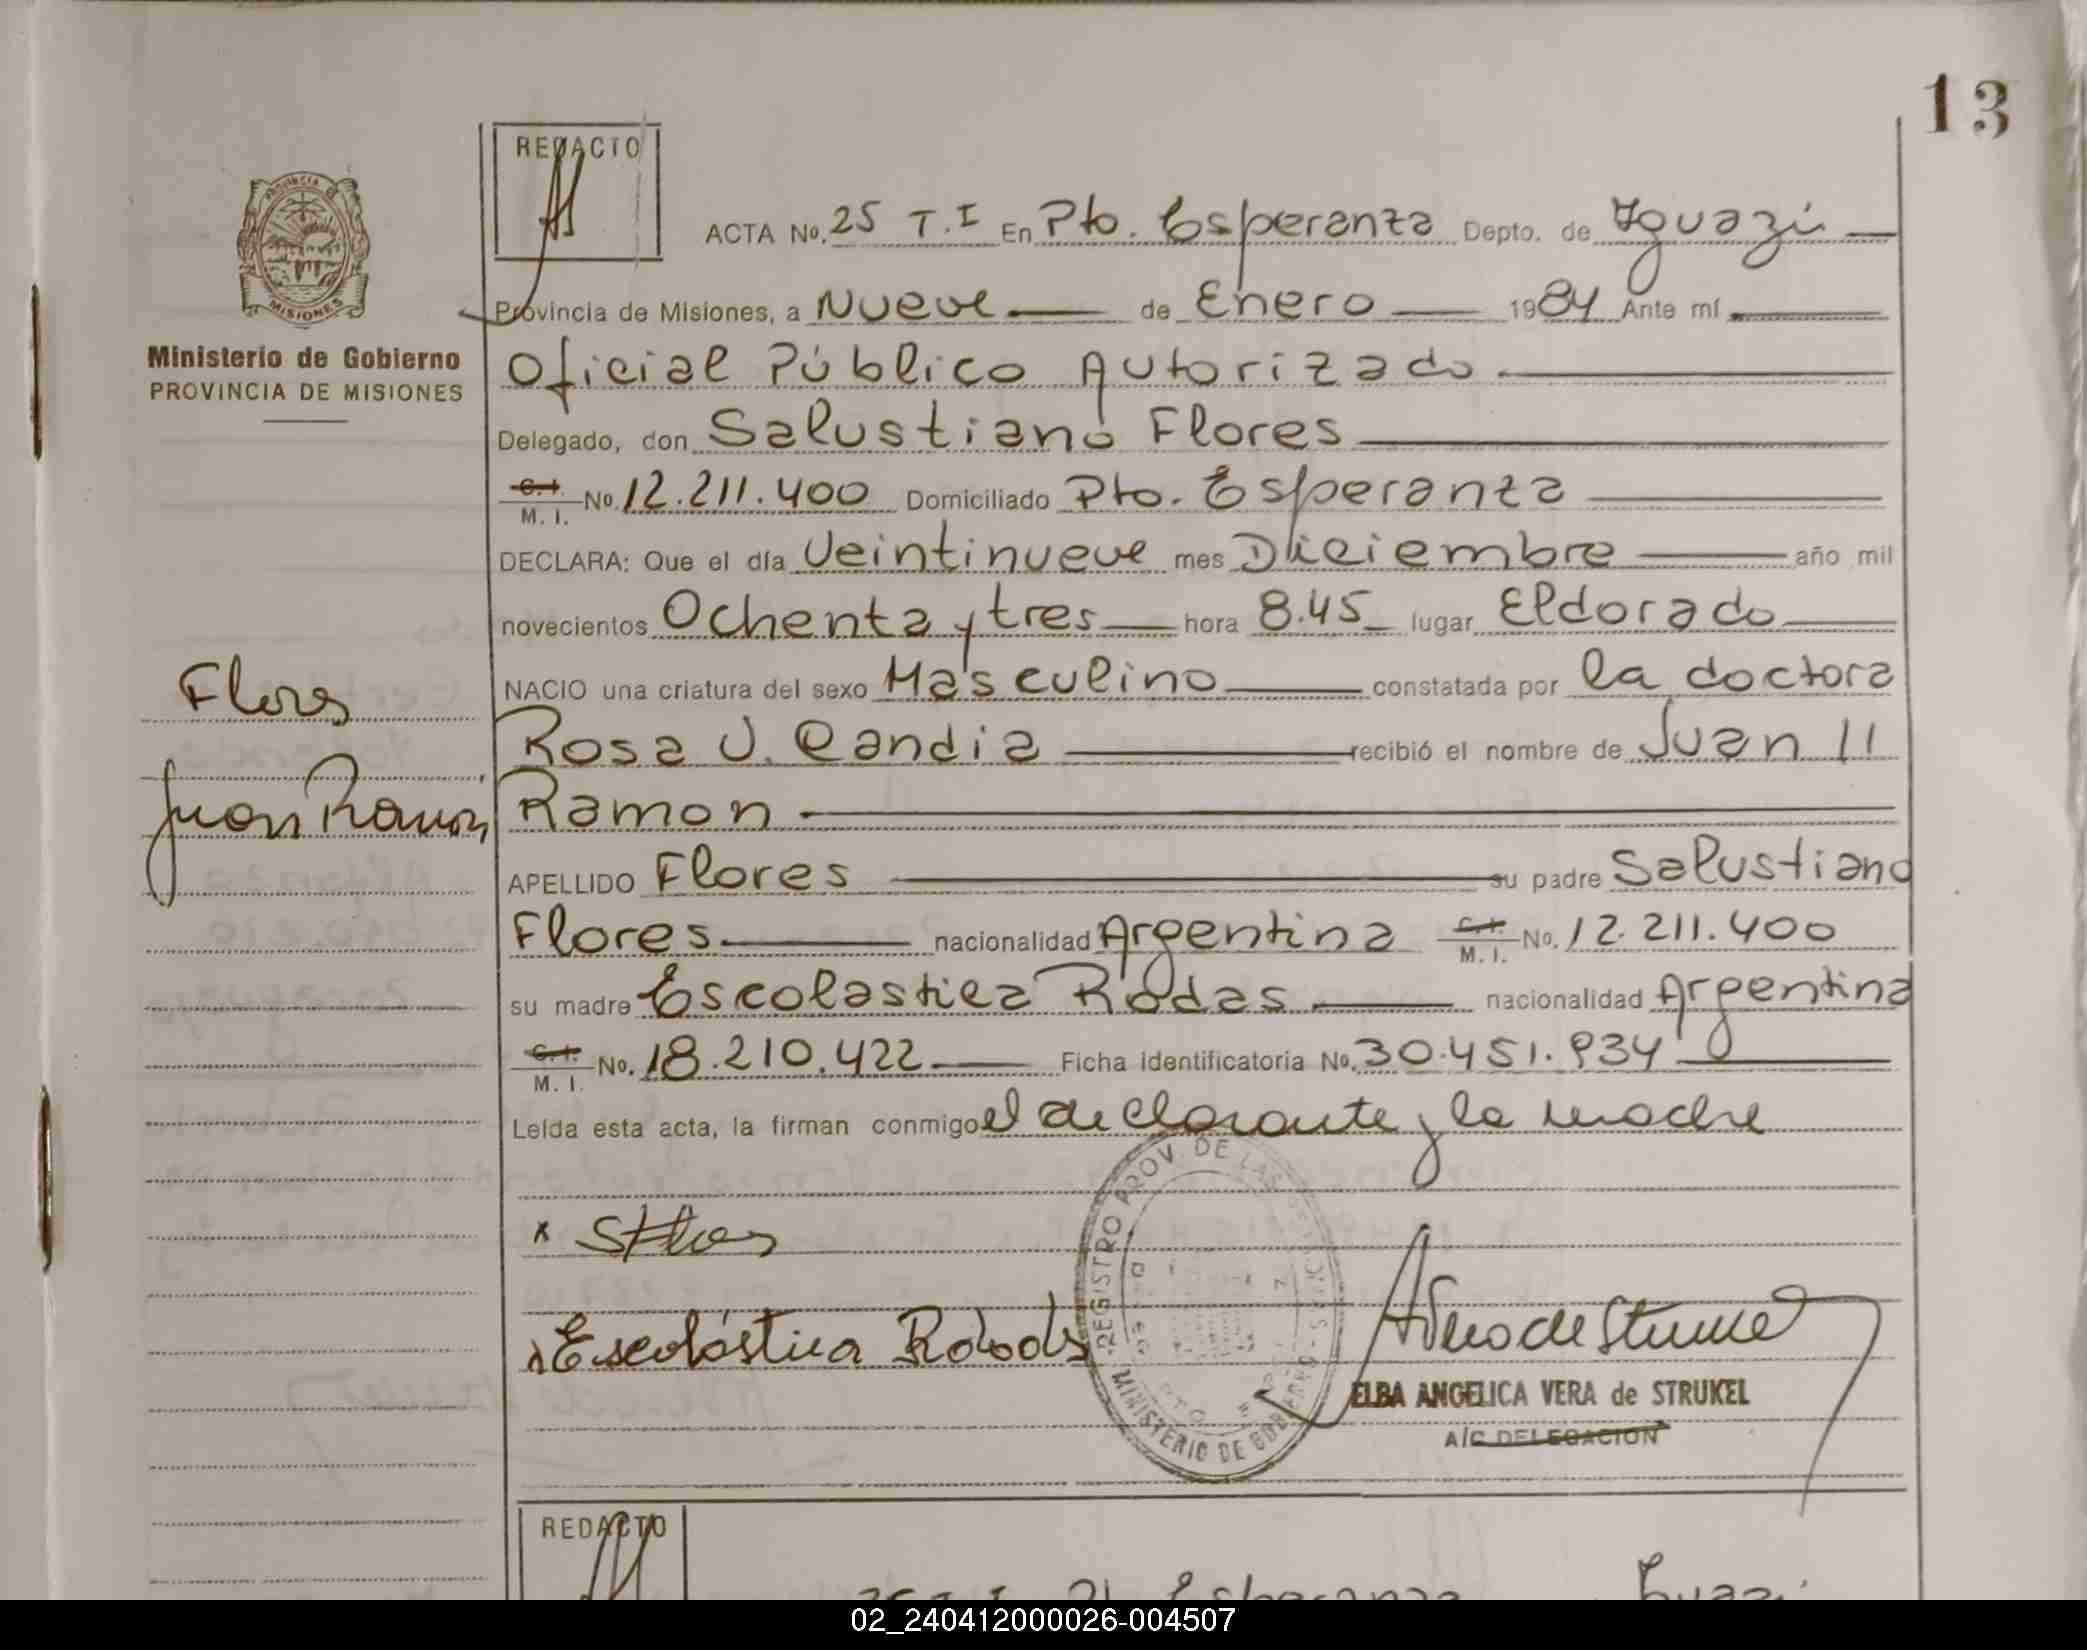 13
REDACTO
ACTA No. 25 T.I En Pto. Esperanza Depto. de Iguazú
Provincia de Misiones, a Nueve de Enero 1984 Ante mí
Ministerio de Gobierno
PROVINCIA DE MISIONES
Oficial Público Autorizado
Delegado, don Salustiano Flores
C.I. M. I. No. 12.211.400 Domiciliado Pto. Esperanza
DECLARA: Que el día Veintinueve mes Diciembre año mil
novecientos Ochenta y tres hora 8.45 lugar Eldorado
Flores
NACIO una criatura del sexo Masculino constatada por la doctora
Rosa J. Candia recibió el nombre de Juan
Juan Ramon
Ramon
APELLIDO Flores su padre Salustiano
Flores nacionalidad Argentina C.I. M. I. No. 12.211.400
su madre Escolastica Rodas nacionalidad Argentina
C.I. M. I. No. 18.210.422 Ficha identificatoria No. 30.451.934
Leída esta acta, la firman conmigo el declarante y la madre
REGISTRO PROV. DE LAS
MINISTERIO DE GOBIERNO
x
Escolástica
ELBA ANGELICA VERA de STRUKEL
A/C DELEGACION
REDACTO
02_240412000026-004507